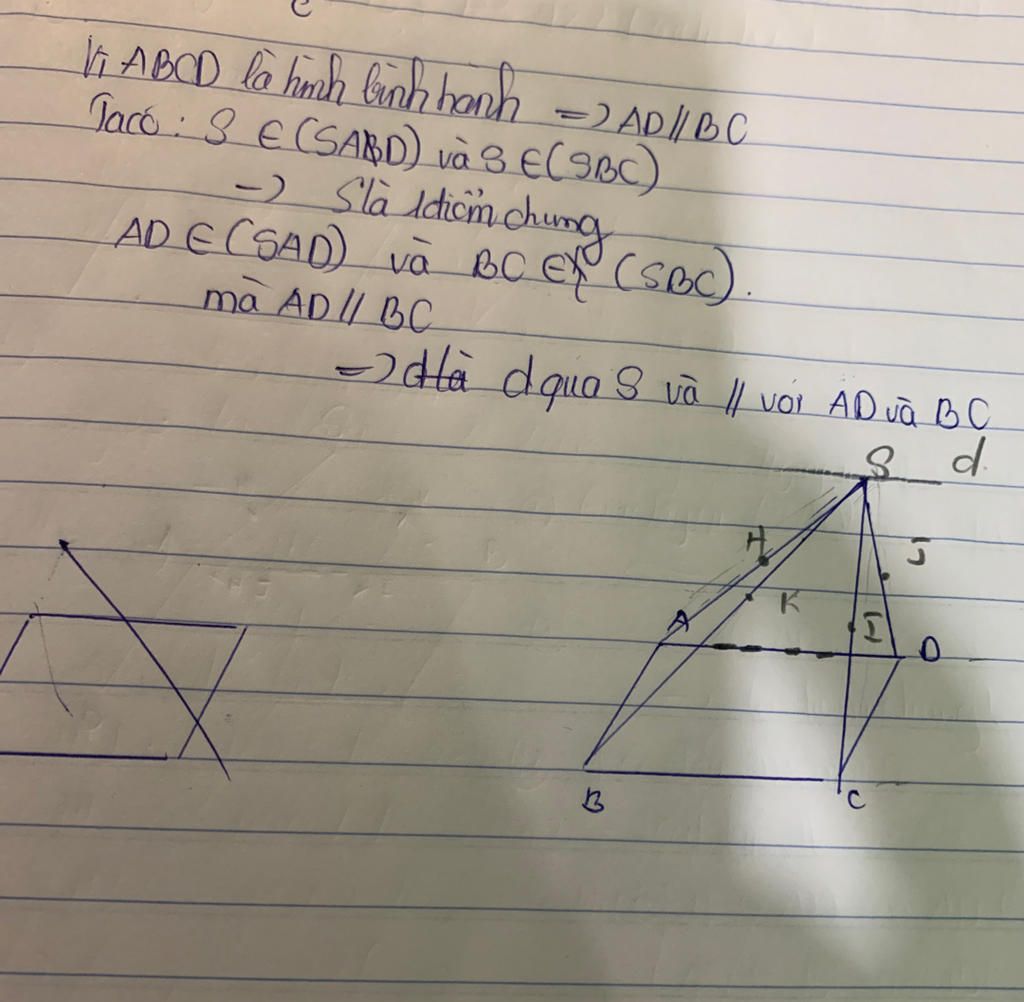 Vì ABCD là hình bình hành => AD // BC
Ta có : S ∈ (SABD) và S ∈ (SBC)
-> S là 1 điểm chung
AD ∈ (SAD) và BC ∈ (SBC).
mà AD // BC
=> d là d qua S và // với AD và BC
S d.
H J
K
A I D
B C